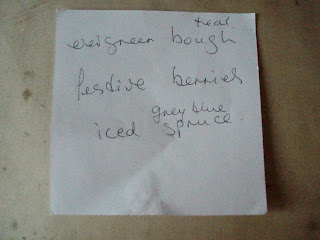 teal
evergreen bough
festive berries
grey blue
iced spruce